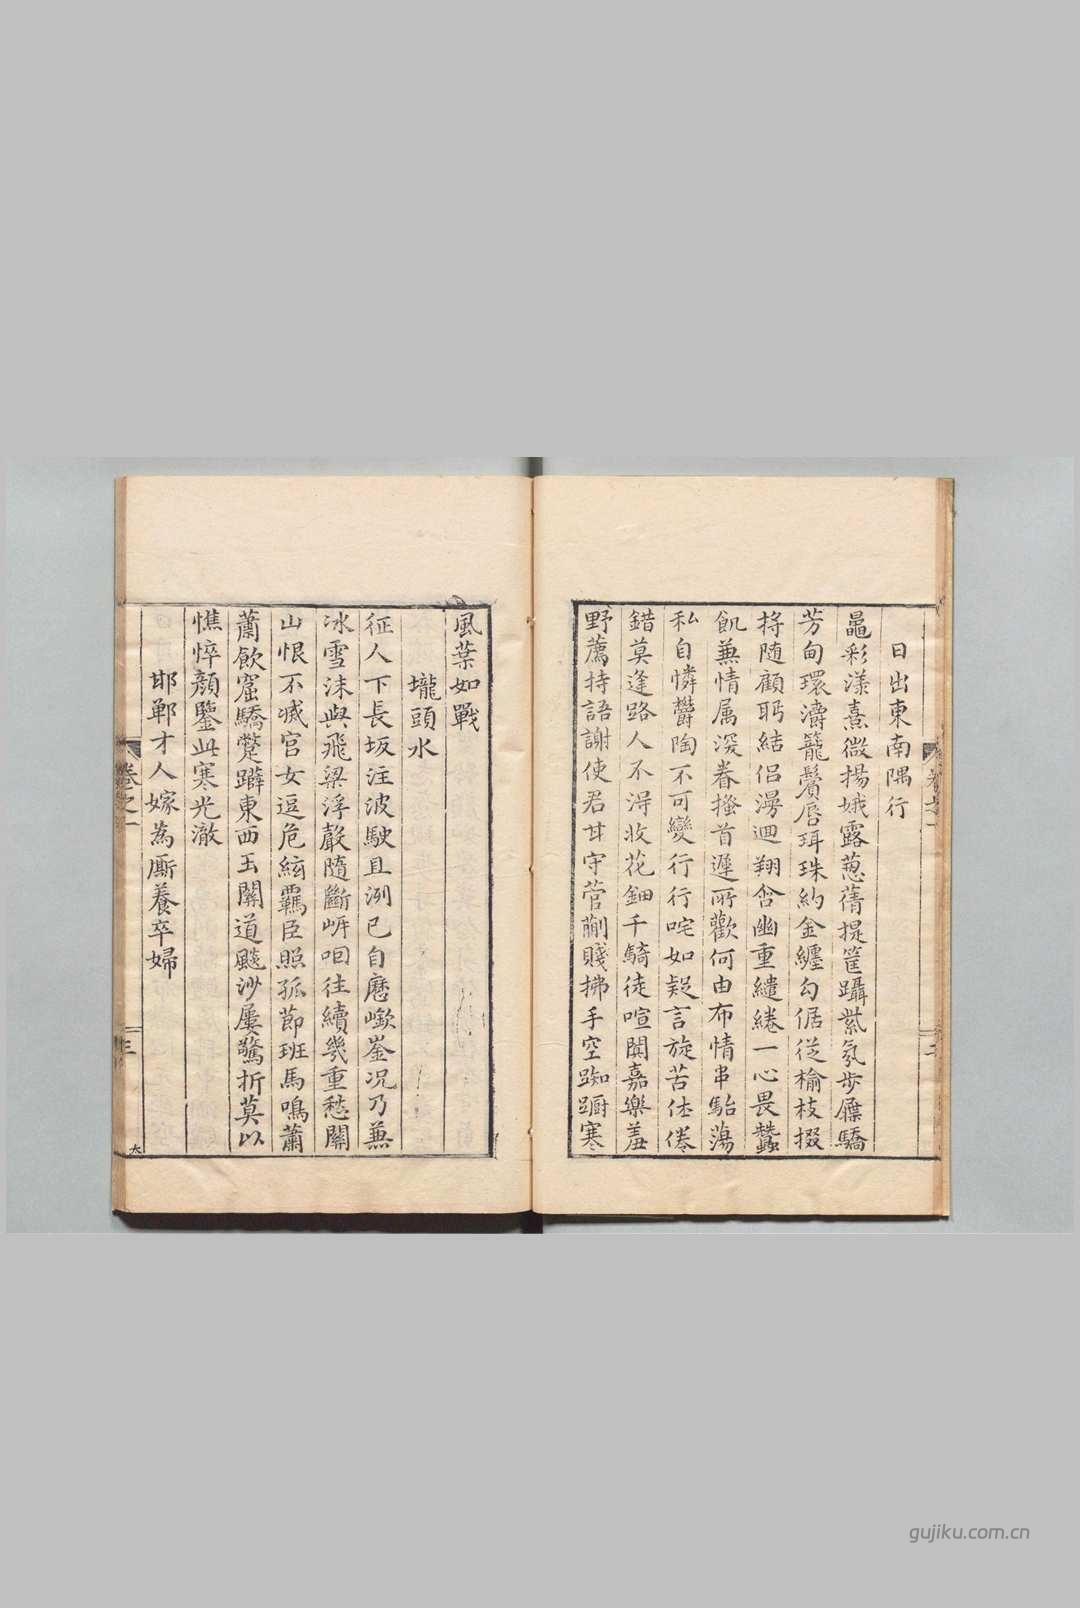 日出東南隅行
鼂彩漾熹微揚娥露蔥蒨提筐躡紫氛步屧驕
芳甸環濤籠鬢唇珥珠約金纏勾倨從榆枝掇
將隨顧眄結侶漫迴翔含幽重繾綣一心畏蠶
飢兼情屬深眷搔首遲所歡何由布情串駘蕩
私自憐鬱陶不可變行行咤如疑言旋苦仕倦
錯莫逢路人不得收花鈿千騎徒喧闐嘉樂羞
野薦持語謝使君甘守菅蒯賤拂手空踟躕寒
風葉如戰
壠頭水
征人下長坂注波駛且洌已自歷嶔崟況乃兼
冰雪沫與飛梁浮聲隨斷岸咽往續幾重愁關
山恨不滅宮女逗危絃羈臣照孤節班馬鳴蕭
蕭飲窟驕蹩躃東西玉關道颷沙屢驚折莫以
憔悴顏鑒此寒光澈
邯鄲才人嫁為厮養卒婦
卷之一
二
卷之一
三
大
gujiku.com.cn